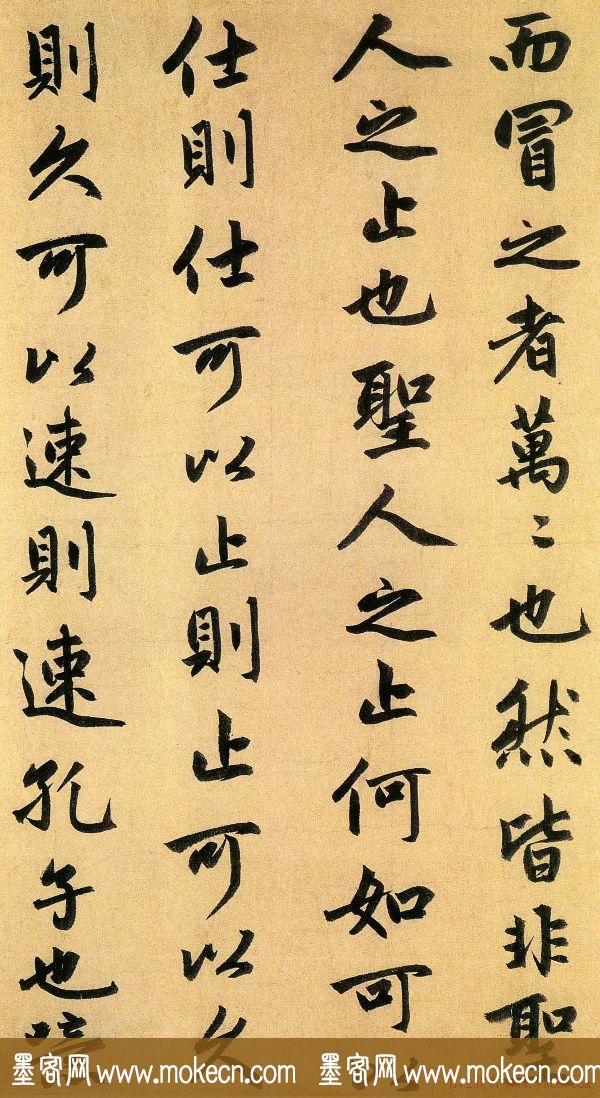 而冒之者萬〻也然皆非聖
人之止也聖人之止何如可以
仕則仕可以止則止可以久
則久可以速則速孔子也
墨客网 www.mokecn.com 墨客网 www.mokecn.com